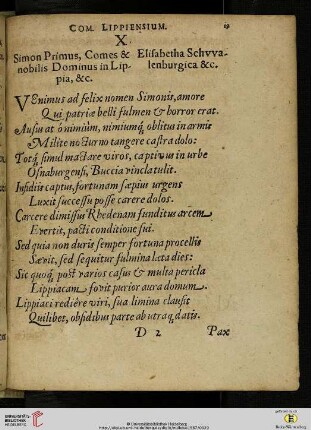 COM. LIPPIENSIUM. 19
X.
Simon Primus, Comes & Elisabetha Schvva-
nobilis Dominus in Lip- lenburgica &c.
pia, &c.
VEnimus ad felix nomen Simonis, amore
Qui patriæ belli fulmen & horror erat.
Ausus at ò nimiùm, nimiumq; oblitus in armis
Milite nocturno tangere castra dolo:
Totq; simul mactare viros, captivus in urbe
Osnaburgensi, Buccia vinclatulit.
Insidiis captus, fortunam sæpius urgens
Luxit successu posse carere dolos.
Carcere dimissus Rhedenam funditus arcem
Evertit, pacti conditione sui.
Sed quia non duris semper fortuna procellis
Sævit, sed sequitur fulmina læta dies:
Sic quoq; post varios casus & multa pericla
Lippiacam fovit purior aura domum.
Lippiaci rediêre viri, sua limina clausit
Quilibet, obsidibus parte ab utraq; datis.
D 2 Pax
UNIVERSITÄTS-
BIBLIOTHEK
HEIDELBERG
© Universitätsbibliothek Heidelberg